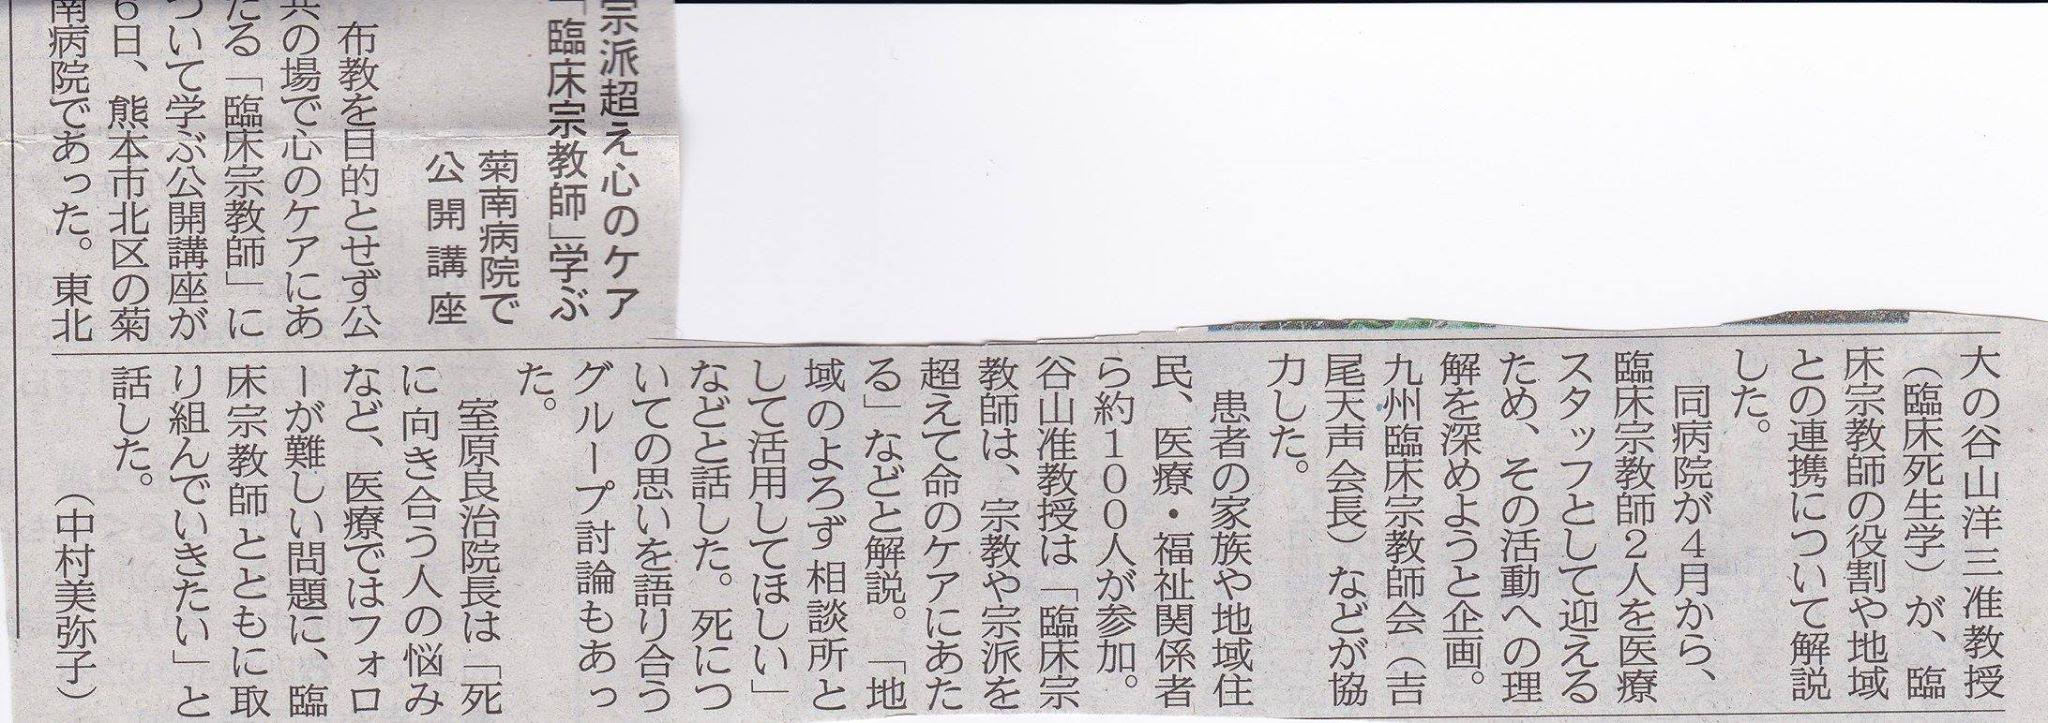 宗派超え心のケア
「臨床宗教師」学ぶ
菊南病院で
公開講座
布教を目的とせず公
共の場で心のケアにあ
たる「臨床宗教師」に
ついて学ぶ公開講座が
6日、熊本市北区の菊
南病院であった。東北
大の谷山洋三准教授
（臨床死生学）が、臨
床宗教師の役割や地域
との連携について解説
した。
同病院が4月から、
臨床宗教師2人を医療
スタッフとして迎える
ため、その活動への理
解を深めようと企画。
九州臨床宗教師会（吉
尾天声会長）などが協
力した。
患者の家族や地域住
民、医療・福祉関係者
ら約100人が参加。
谷山准教授は「臨床宗
教師は、宗教や宗派を
超えて命のケアにあた
る」などと解説。「地
域のよろず相談所と
して活用してほしい」
などと話した。死につ
いての思いを語り合う
グループ討論もあっ
た。
室原良治院長は「死
に向き合う人の悩み
など、医療ではフォロ
ーが難しい問題に、臨
床宗教師とともに取
り組んでいきたい」と
話した。
（中村美弥子）